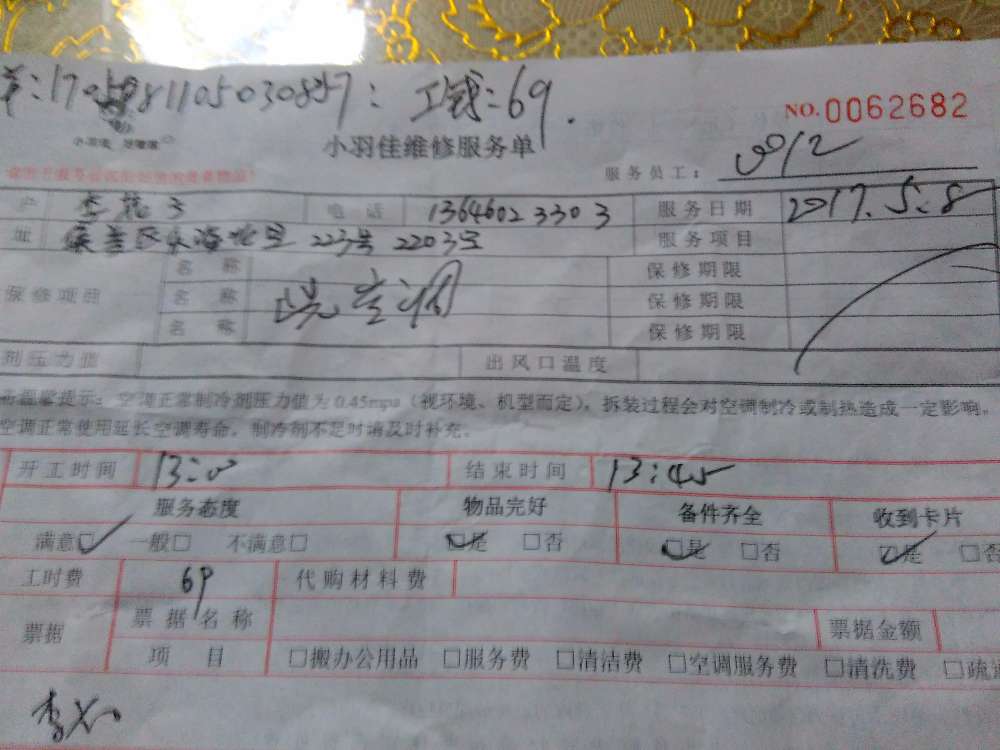 工钱:69.
NO.0062682
小羽佳维修服务单
服务员工:
电话 13646023303 服务日期 2017.5.8
223号2203室 服务项目
名称 保修期限
保修项目 名称 洗空调 保修期限
名称 保修期限
剂压力值 出风口温度
温馨提示:空调正常制冷剂压力值为0.45mpa(视环境、机型而定),拆装过程会对空调制冷或制热造成一定影响。
空调正常使用延长空调寿命,制冷剂不足时请及时补充。
开工时间 13:00 结束时间 13:45
服务态度 物品完好 备件齐全 收到卡片
满意☑ 一般□ 不满意□ ☑是 □否 ☑是 □否 ☑是 □否
工时费 69 代购材料费
票据 票据名称 票据金额
项目 □搬办公用品 □服务费 □清洁费 □空调服务费 □清洗费 □疏